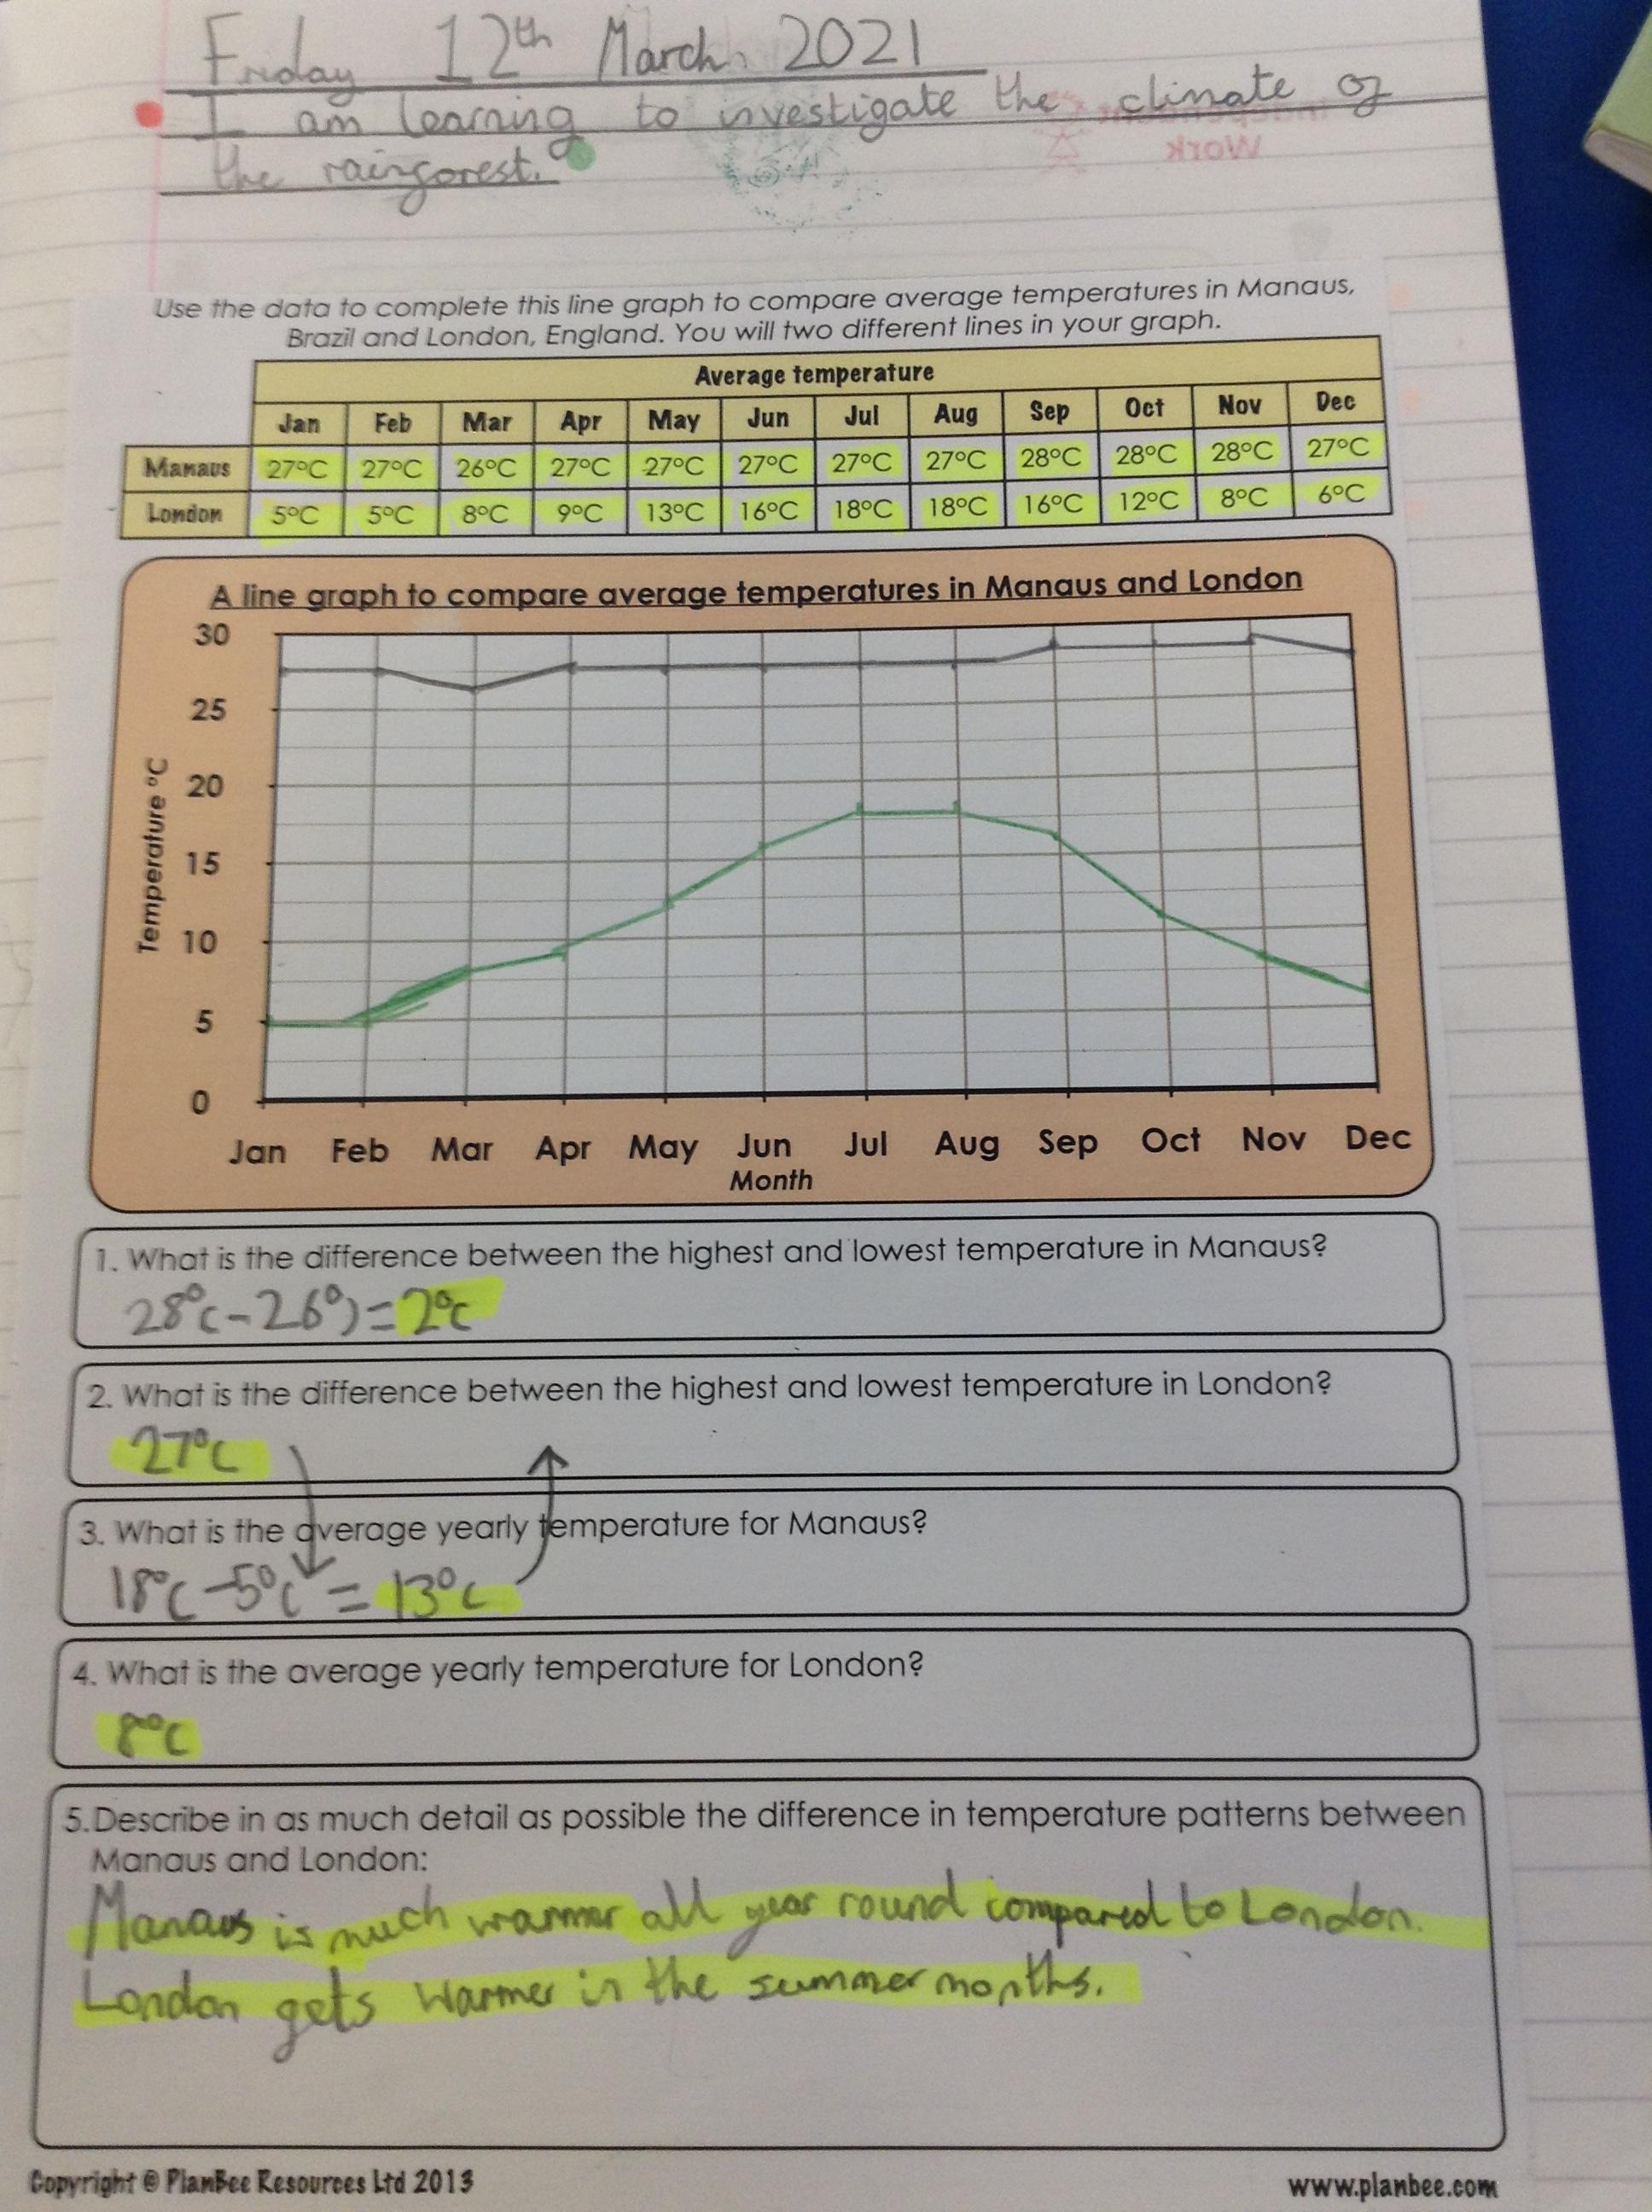 Friday 12th March 2021
I am learning to investigate the climate of
the rainforest.
Independent
Work
Use the data to complete this line graph to compare average temperatures in Manaus,
Brazil and London, England. You will two different lines in your graph.
Average temperature
Jan Feb Mar Apr May Jun Jul Aug Sep Oct Nov Dec
Manaus 27°C 27°C 26°C 27°C 27°C 27°C 27°C 27°C 28°C 28°C 28°C 27°C
London 5°C 5°C 8°C 9°C 13°C 16°C 18°C 18°C 16°C 12°C 8°C 6°C
A line graph to compare average temperatures in Manaus and London
30
25
20
15
10
5
0
Temperature °C
Jan Feb Mar Apr May Jun Jul Aug Sep Oct Nov Dec
Month
1. What is the difference between the highest and lowest temperature in Manaus?
28°c-26°)=2°c
2. What is the difference between the highest and lowest temperature in London?
27°C
3. What is the average yearly temperature for Manaus?
18°C-5°C = 13°C
4. What is the average yearly temperature for London?
8°C
5.Describe in as much detail as possible the difference in temperature patterns between
Manaus and London:
Manaus is much warmer all year round compared to London.
London gets warmer in the summer months.
Copyright © PlanBee Resources Ltd 2013 www.planbee.com